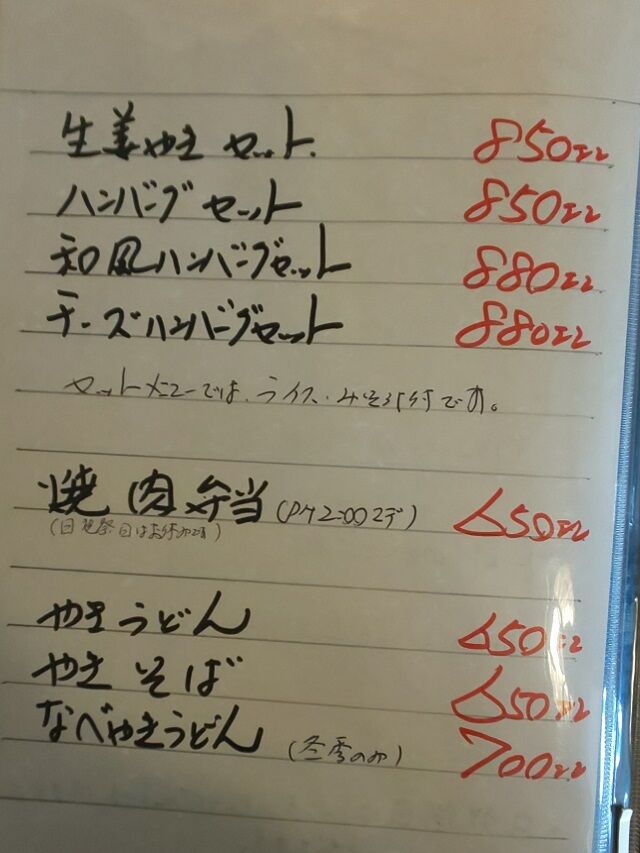 生姜やき セット 850円
ハンバーグ セット 850円
和風ハンバーグセット 880円
チーズハンバーグセット 880円
セットメニューでは、ライス・みそ汁付です。
焼肉弁当 (PM2:00マデ) 650円
(日 祝祭日はお休みです)
やきうどん 650円
やきそば 650円
なべやきうどん (冬季のみ) 700円